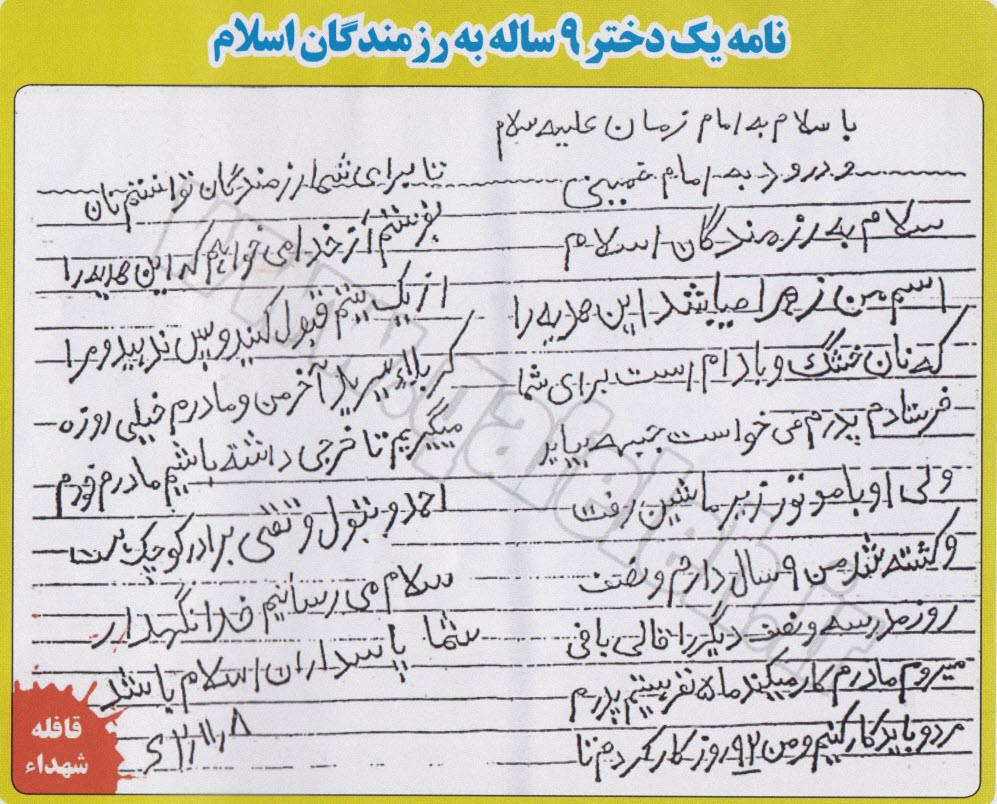 نامه یک دختر ۹ ساله به رزمندگان اسلام
با سلام به امام زمان علیه سلام
و درود به امام خمینی
سلام به رزمندگان اسلام
اسم من زهرا میباشد این هدیه را
که نان خشگ و بادام است برای شما
فرستادم پدرم می خواست جبهه بیاید
ولی او با موتور زیر ماشین رفت
و کشته شد من ۹ سال دارم و نصف
روز مدرسه و نصف دیگر را قالی بافی
میروم مادرم کار میکند ما ۵ نفر هستیم پدرم
مرد و باید کار کنیم و من ۹۲ روز کار کردم تا
تا برای شما رزمندگان توانستم نان
بفرستم از خدا می خواهم که این هدیه را
از یک یتیم قبول کنید و پس ندهید و مرا
کربلا ببرید آخر من و مادرم خیلی روزه
میگیریم تا خرجی داشته باشیم مادرم خودم
احمد و بتول و تقی برادر کوچک است
سلام می رسانیم خدا نگهدار
شما پاسداران اسلام باشد
قافله
شهداء
www.qafeleh.ir